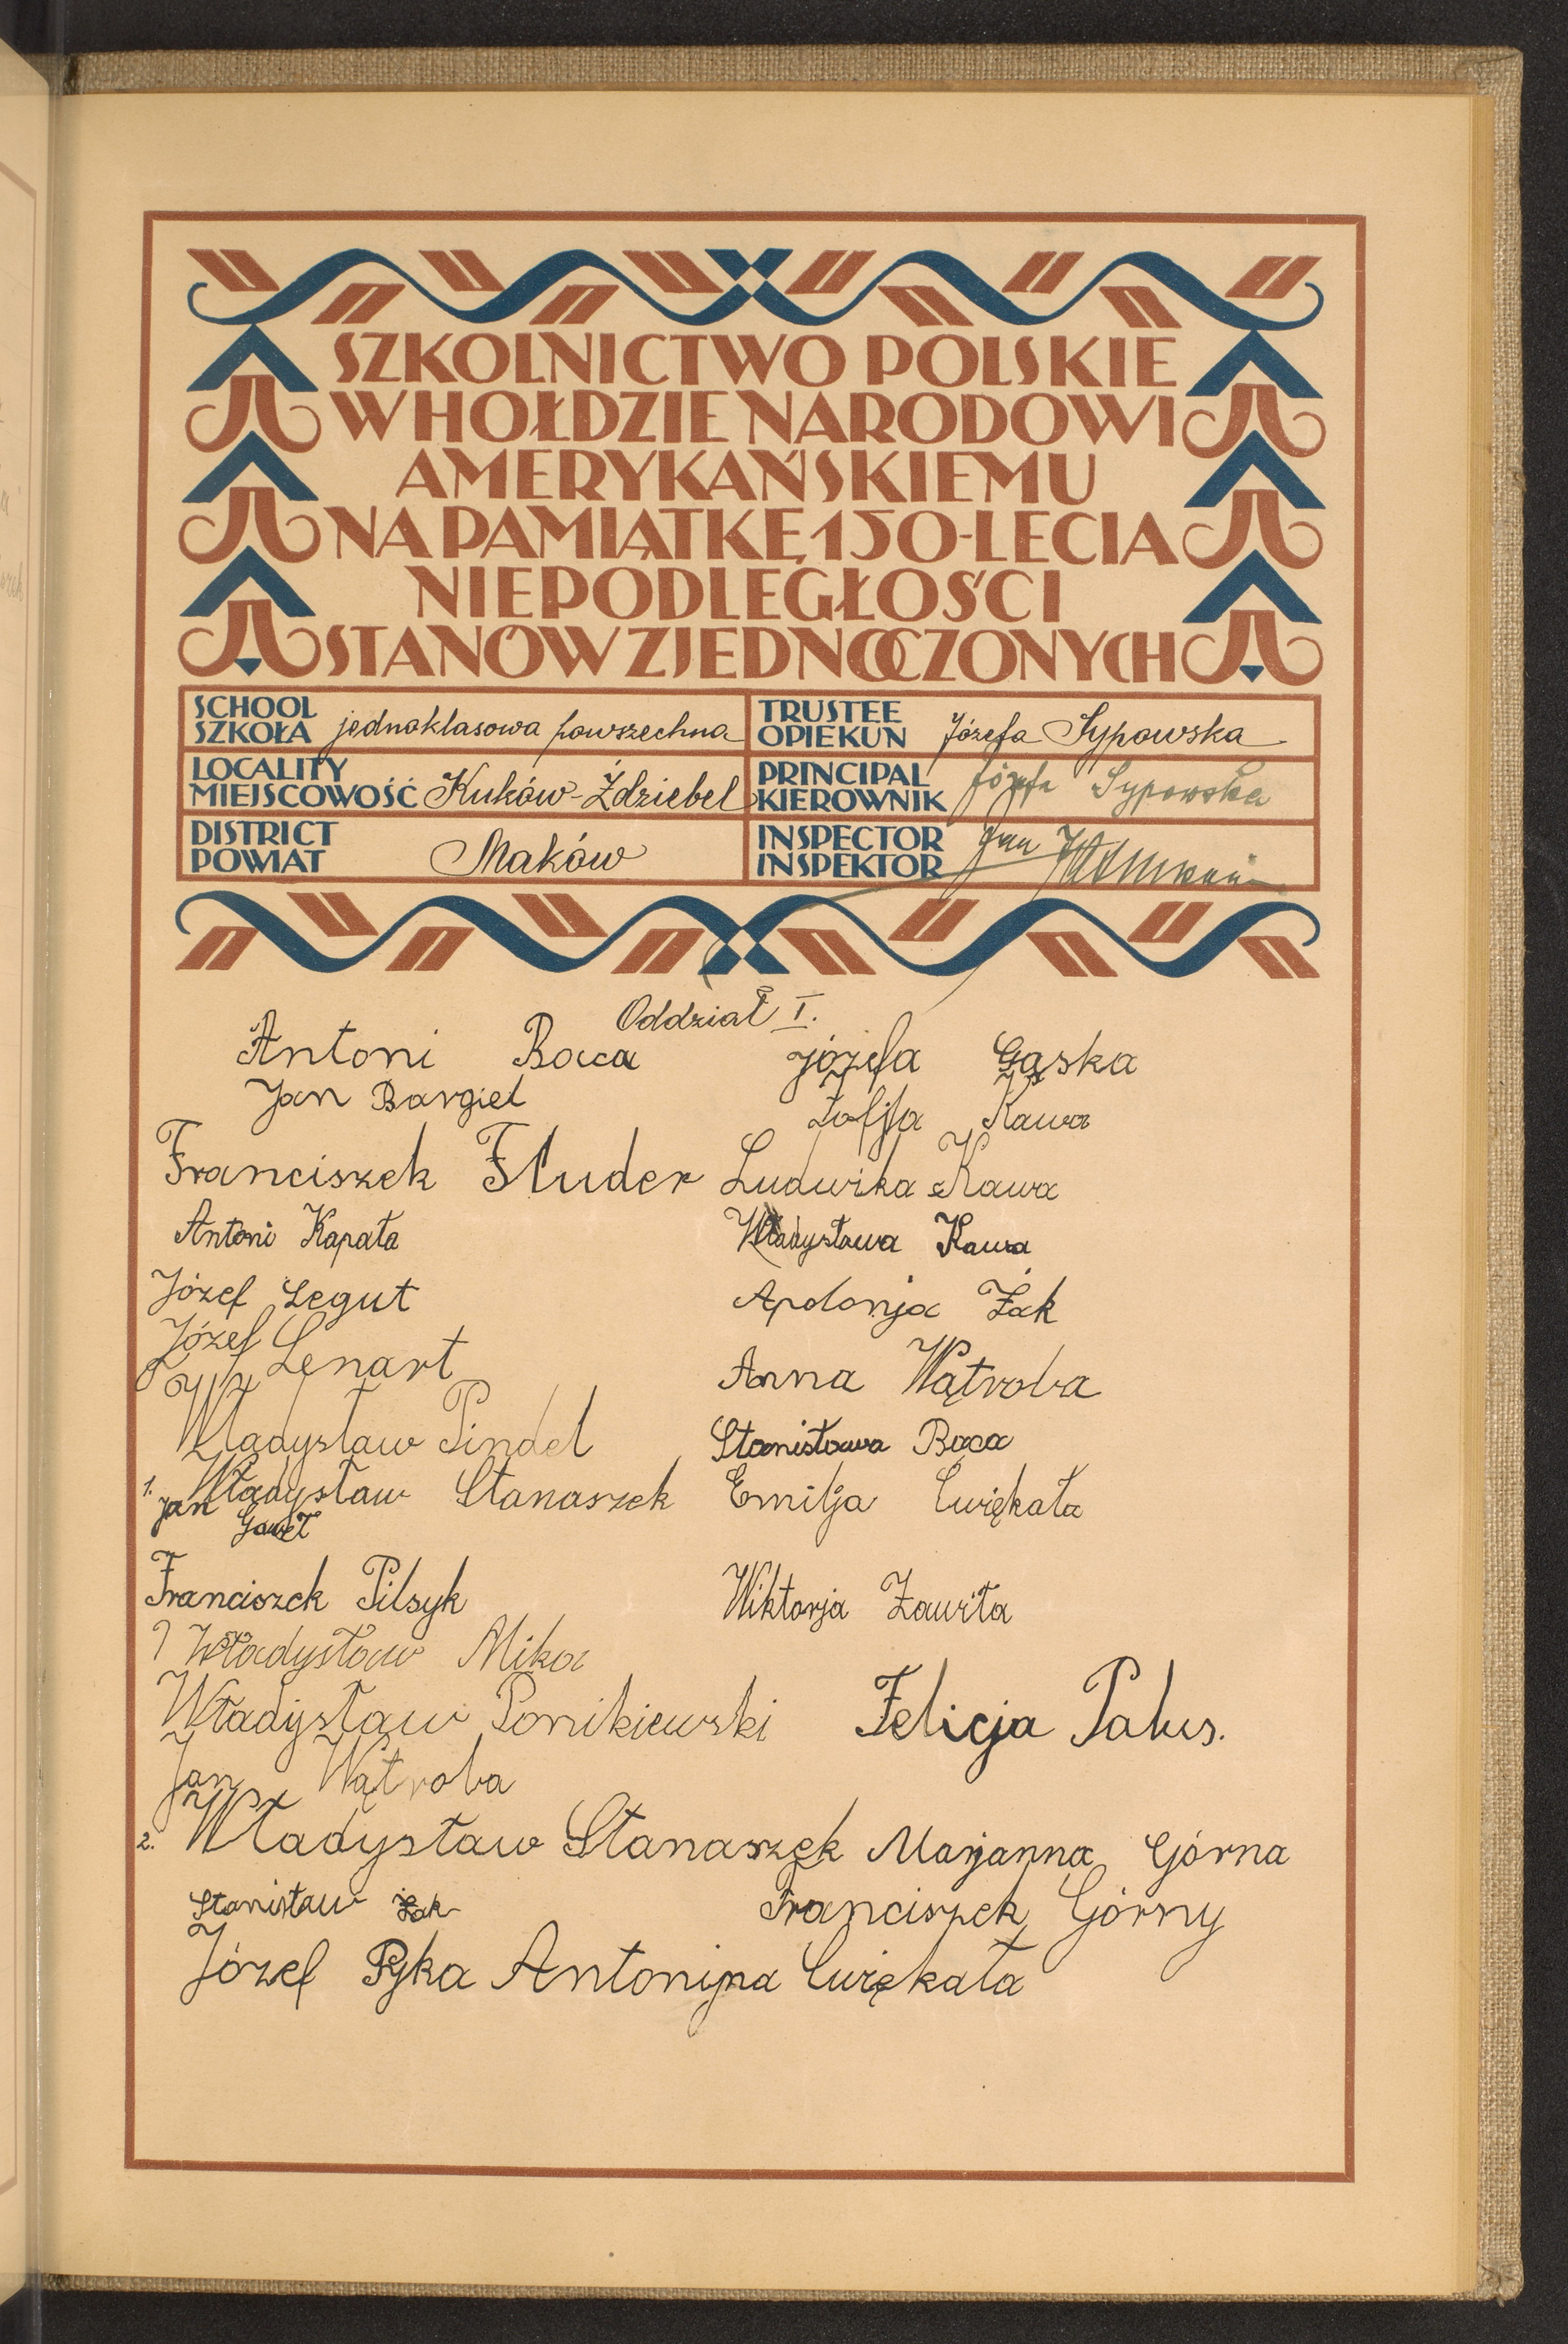 SZKOLNICTWO POLSKIE
W HOŁDZIE NARODOWI
AMERYKAŃSKIEMU
NA PAMIĄTKĘ 150-LECIA
NIEPODLEGŁOŚCI
STANÓW ZJEDNOCZONYCH
SCHOOL
SZKOŁA jednoklasowa powszechna
TRUSTEE
OPIEKUN Józefa Sypowska
LOCALITY
MIEJSCOWOŚĆ Kuków-Ździebel
PRINCIPAL
KIEROWNIK Józefa Sypowska
DISTRICT
POWIAT Maków
INSPECTOR
INSPEKTOR Jan
Oddział I.
Antoni Baca
Józefa Gąska
Jan Bargiel
Zofja Kawa
Franciszek Fluder
Ludwika Kawa
Antoni Kapała
Władysława Kawa
Józef Legut
Apolonja Żak
Józef Lenart
Anna Wątroba
Władysław Pindel
Stanisława Baca
1. Władysław Stanaszek
Emilja Ćwiękała
Jan Gaweł
Franciszek Pilsyk
Wiktorja Zawiła
Władysław Mika
Władysław Ponikiewski
Felicja Palus.
Jan Wątroba
2. Władysław Stanaszek
Marjanna Górna
Stanisław Żak
Franciszek Górny
Józef Pyka
Antonina Ćwiękała